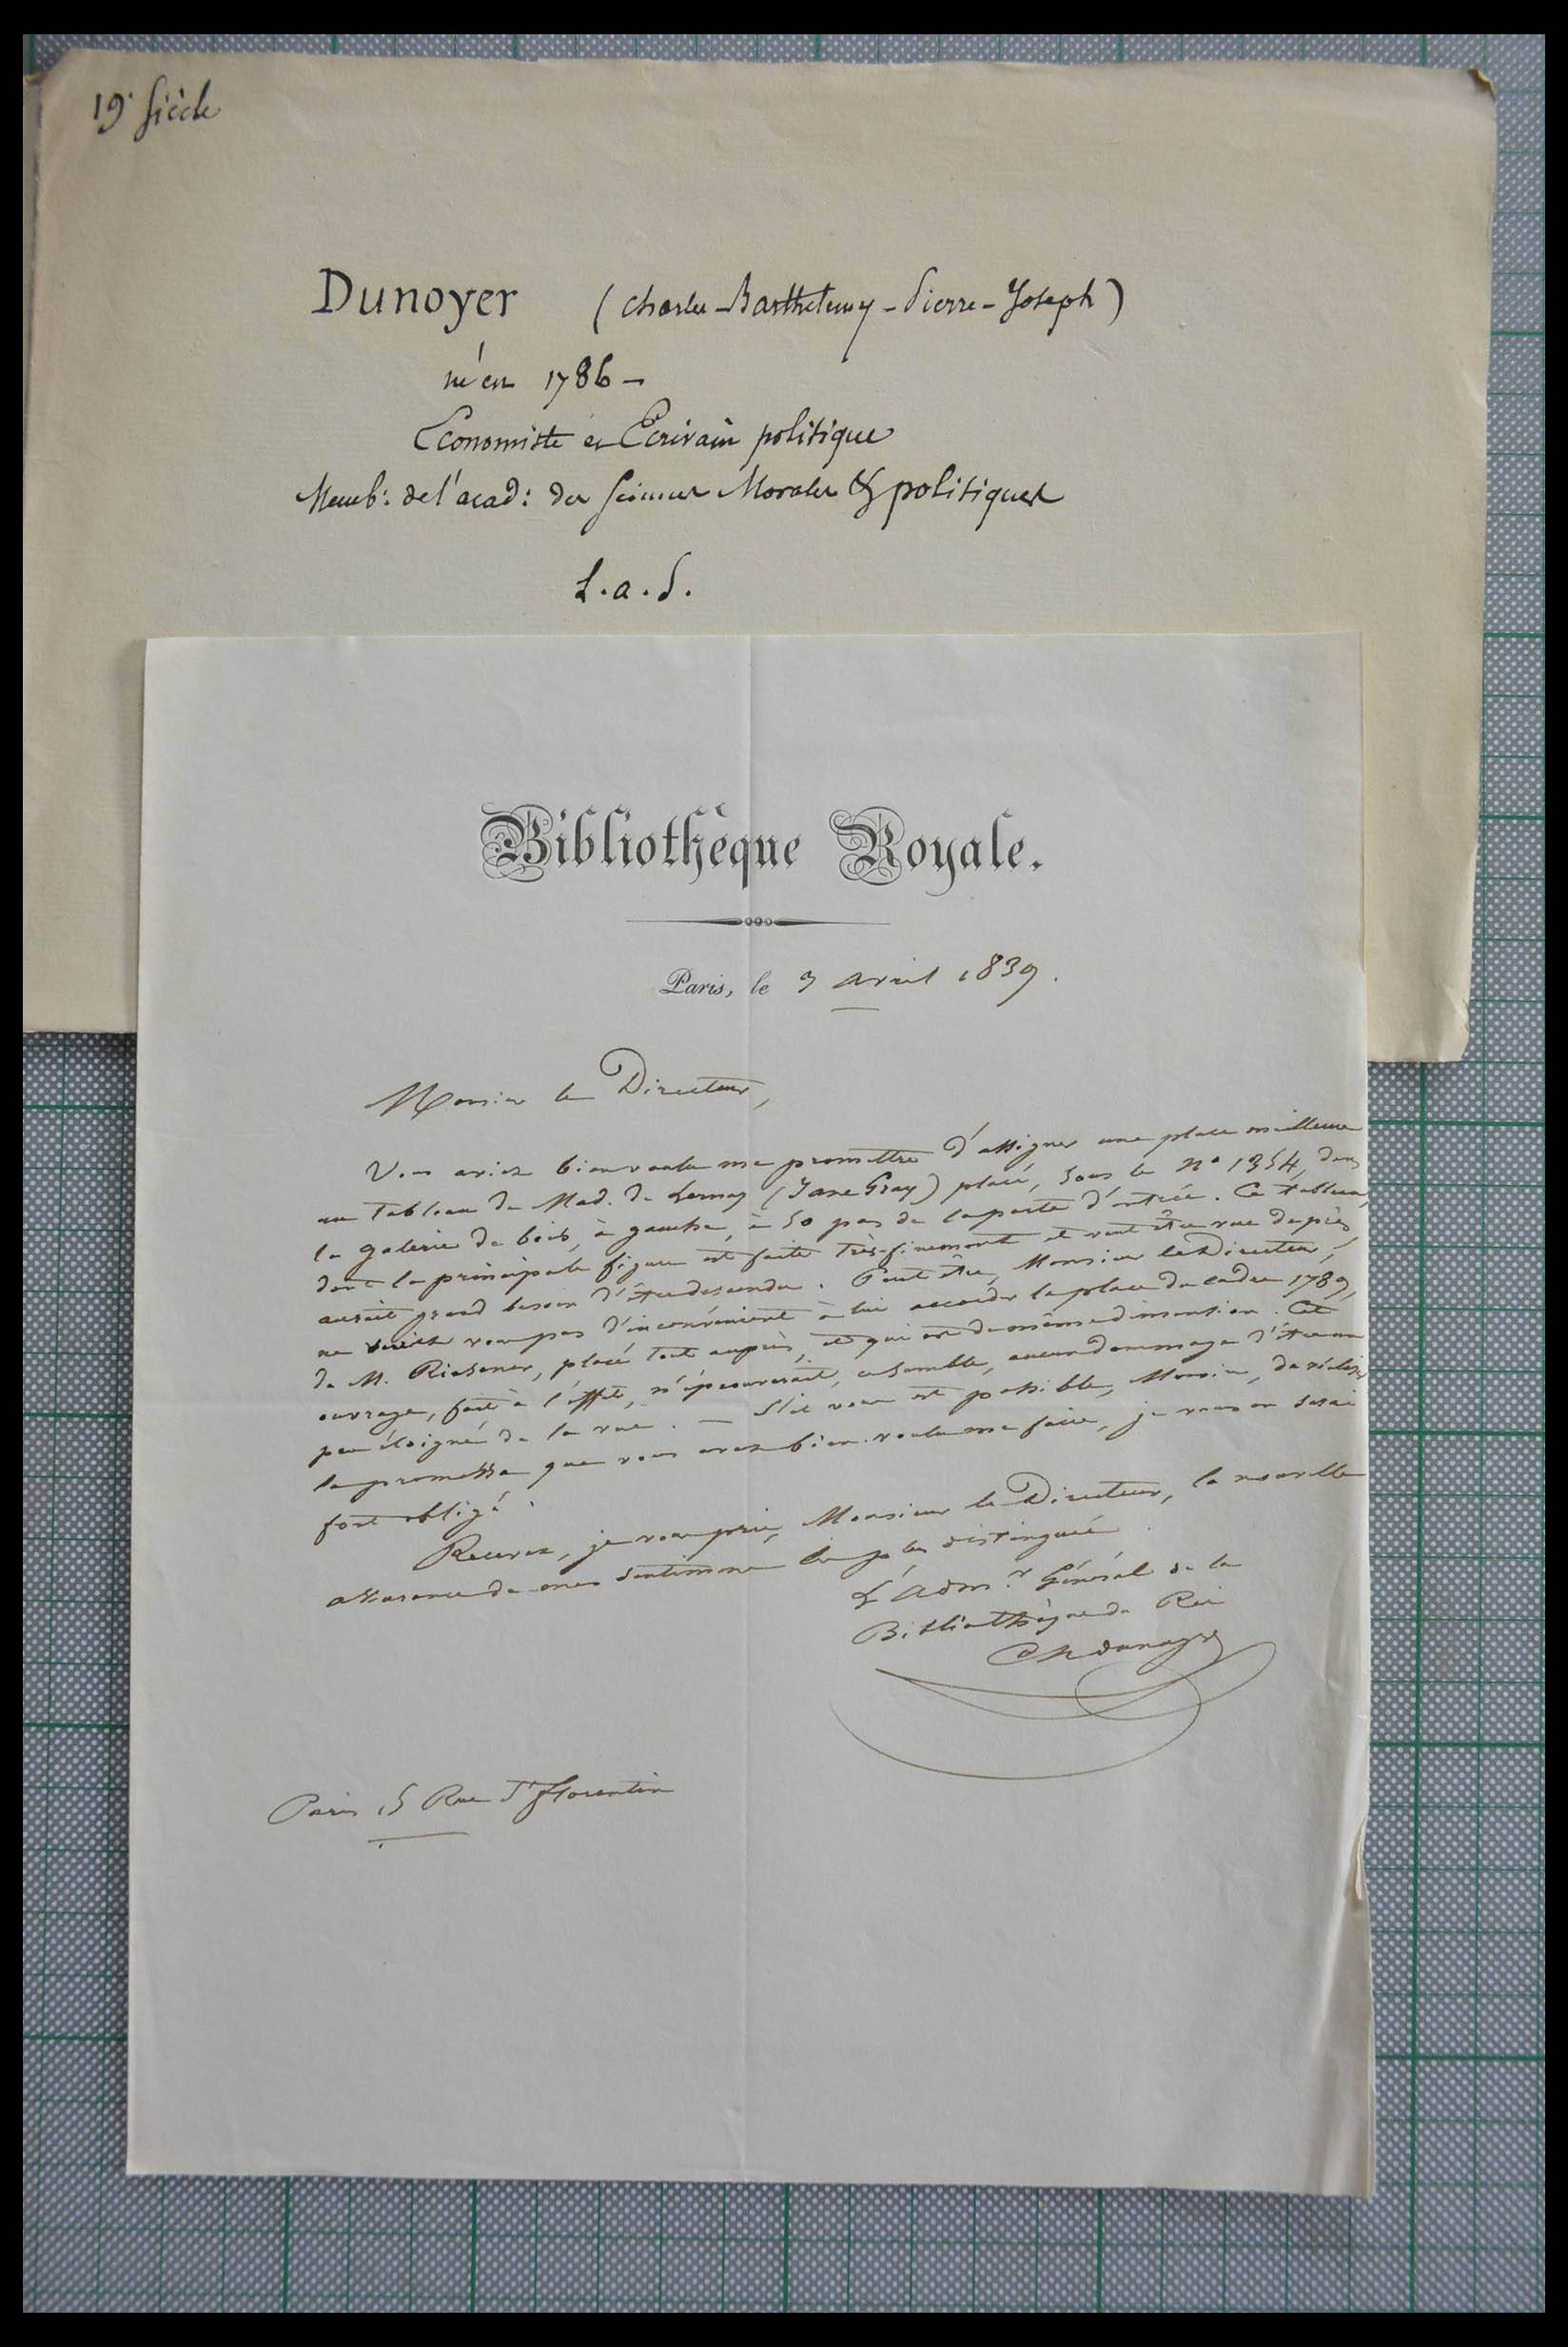 19e Siècle
Dunoyer (Charles-Barthelemy-Pierre-Joseph)
né en 1786 -
Economiste et Ecrivain politique
Memb: de l'acad: des Sciences Morales & politiques
L.a.S.
Bibliothèque Royale.
Paris, le 3 avril 1839.
Monsieur le Directeur,
Vous aviez bien voulu me promettre d'assigner une place meilleure
au tableau de Mad. de Lernay (Jane Gray) placé, sous le n° 1354, dans
la galerie de bois, à gauche, à 50 pas de la porte d'entrée. Ce tableau,
dont la principale figure est faite très-finement et veut être vue de près
aurait grand besoin d'être descendu. Peut-être, Monsieur le Directeur,
ne verriez vous pas d'inconvénient à lui accorder la place du cadre 1789,
de M. Riesener, placé tout auprès, et qui est de même dimension. Cet
ouvrage, fait à l'effet, n'éprouverait, ce semble, aucun dommage d'être un
peu éloigné de la vue. — S'il vous est possible, Monsieur, de réaliser
la promesse que vous avez bien voulu me faire, je vous en serai
fort obligé.
Recevez, je vous prie, Monsieur le Directeur, la nouvelle
assurance de mes sentimens les plus distingués.
L'adm.r Général de la
Bibliothèque du Roi
Ch Dunoyer
Paris 15 Rue St florentin